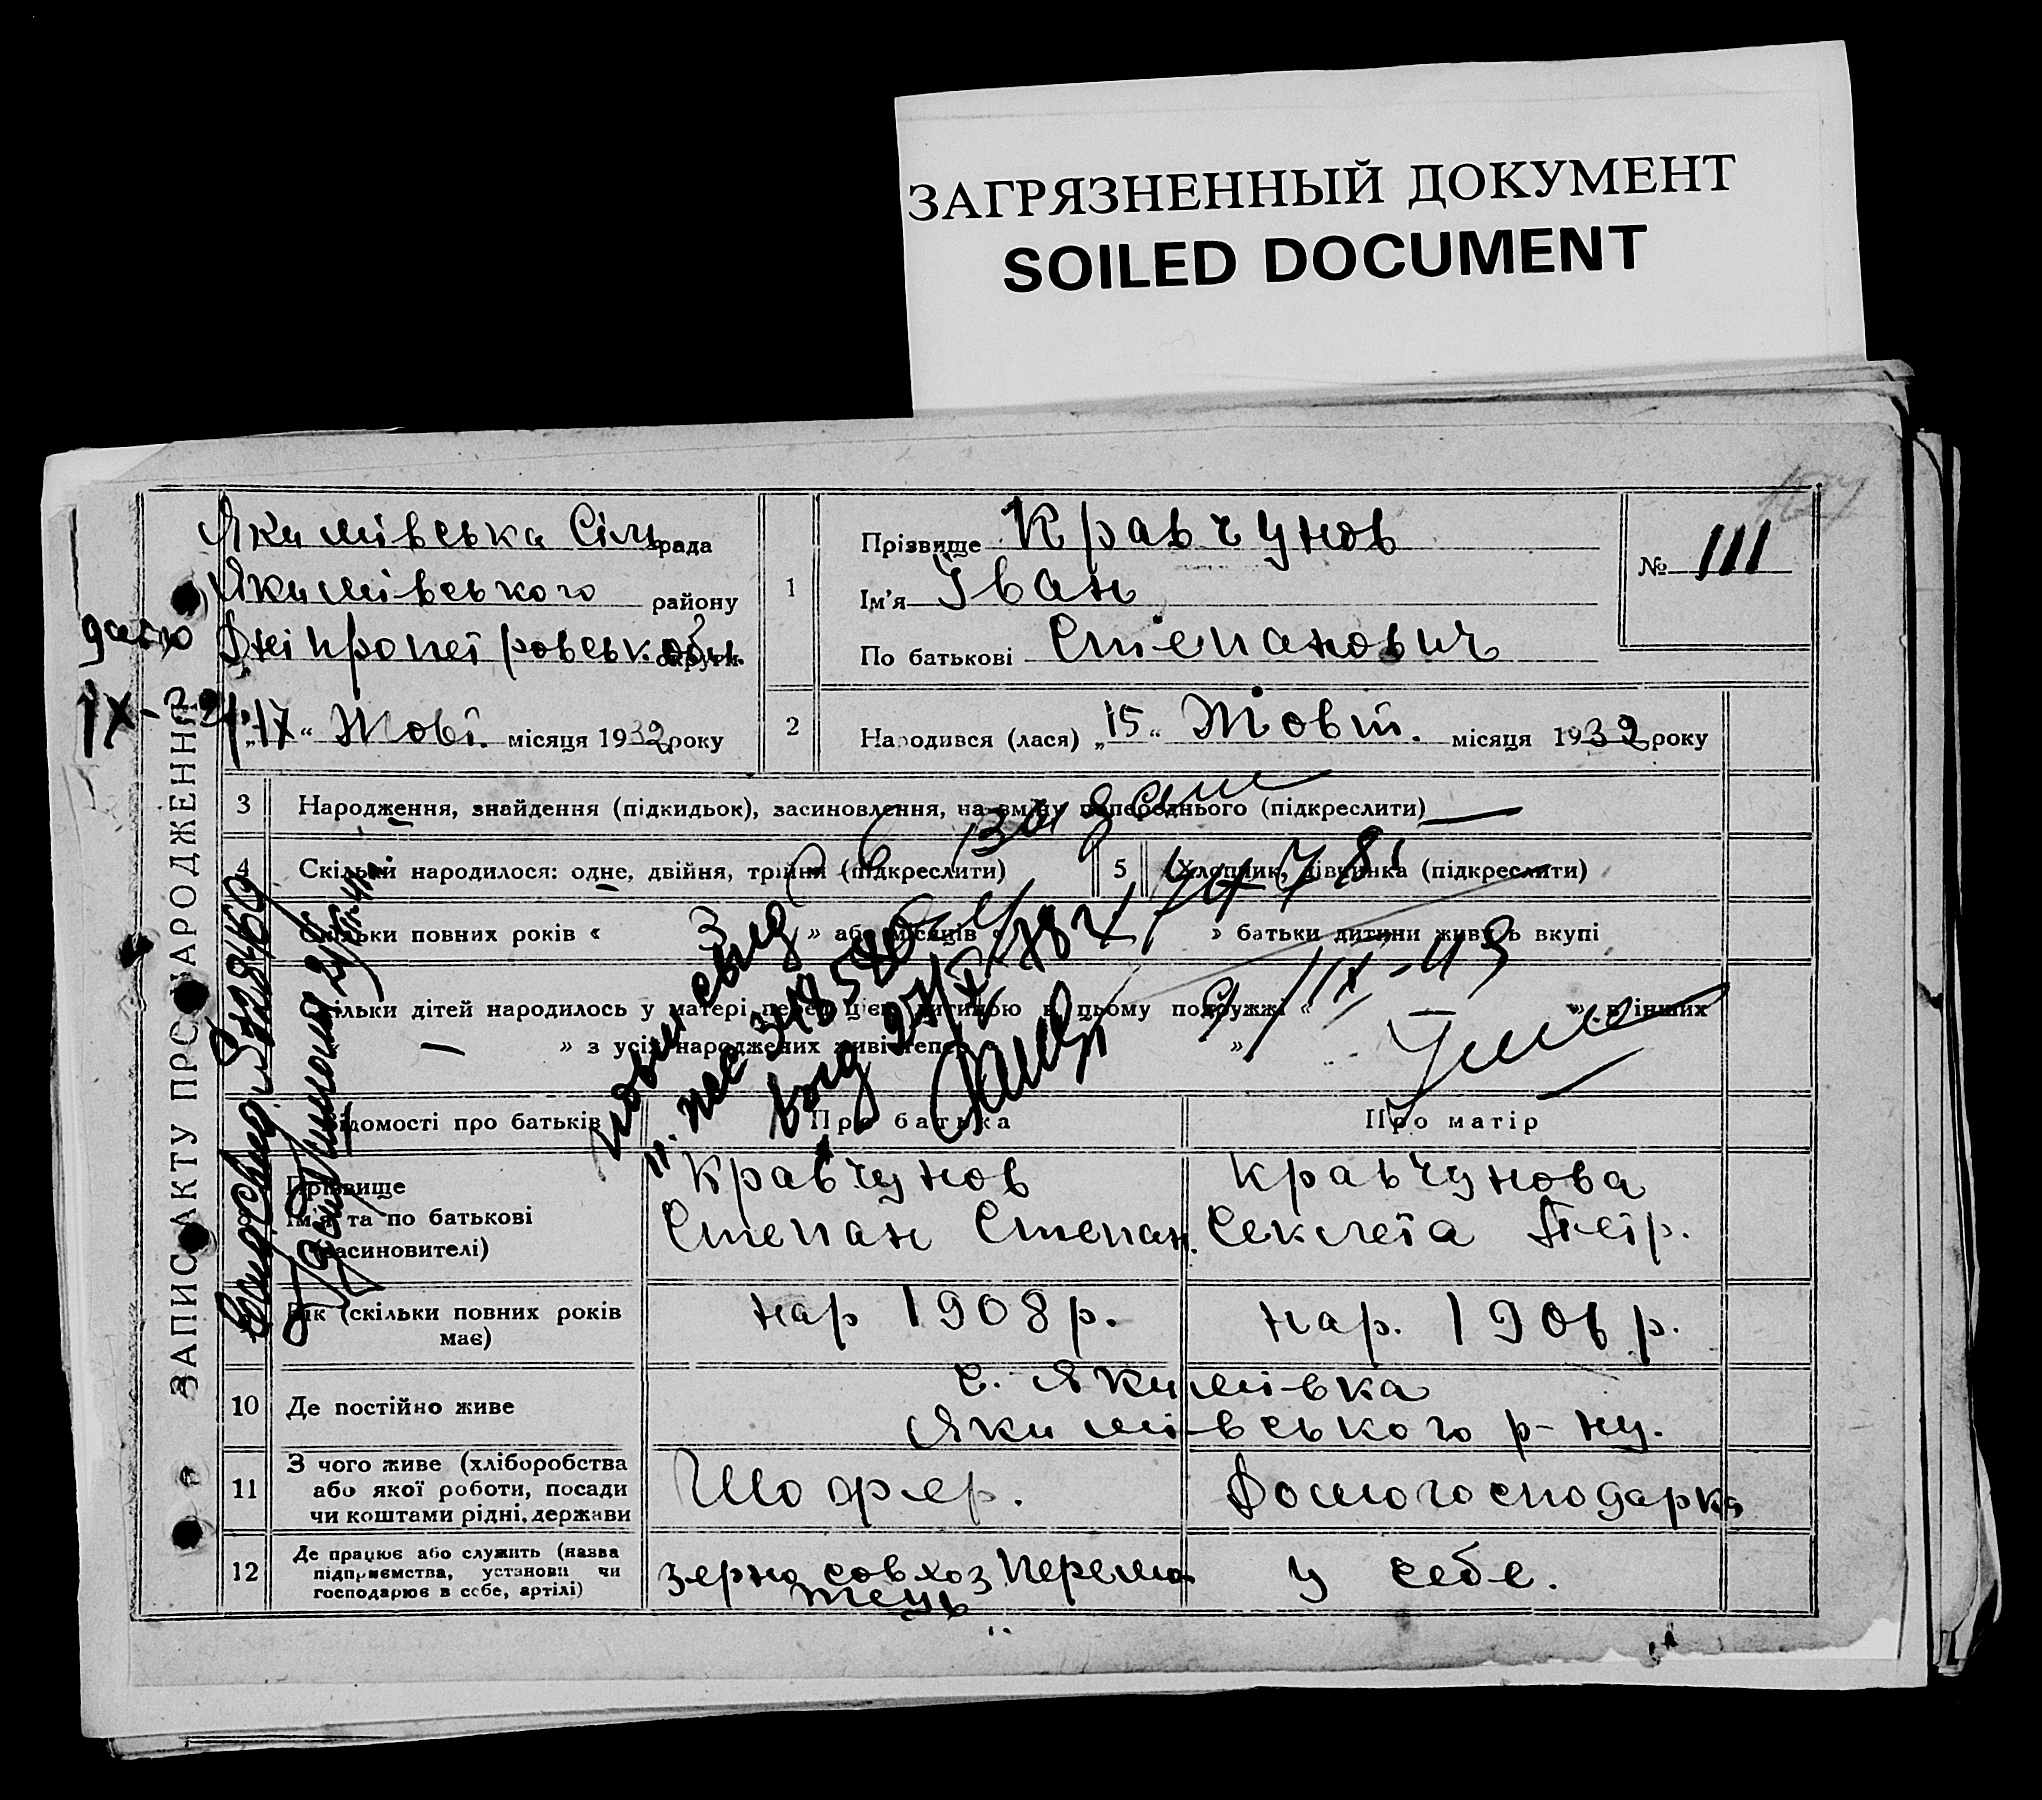 ЗАГРЯЗНЕННЫЙ ДОКУМЕНТ
SOILED DOCUMENT
ЗАПИС АКТУ ПРО НАРОДЖЕННЯ
Якимівська Сіль рада
Якимівського району
Дніпропетровськ обл. округи
„17“ Жовт. місяця 1932 року
1
Прізвище Кравчунов
Ім'я Іван
По батькові Степанович
№ 111
2
Народився (лася) „15“ Жовт. місяця 1932 року
3 Народження, знайдення (підкидьок), засиновлення, на зміну попереднього (підкреслити)
4 Скількі народилося: одне, двійня, трійня (підкреслити)
5 Хлопчик, дівчинка (підкреслити)
Скільки повних років « 3 » або місяців « » батьки дитини живуть вкупі
Скільки дітей народилось у матері перед цією дитиною в цьому подружжі « » в інших
» з усіх народжених живі тепер »
Відомості про батьків
Про батька
Про матір
Прізвище
Ім'я та по батькові
(засиновителі)
Кравчунов
Степан Степан.
Кравчунова
Секлета Петр.
Вік (скільки повних років має)
нар 1908 р.
нар. 1906 р.
10 Де постійно живе
с. Якимівка
Якимівського р-ну.
11 З чого живе (хліборобства
або якої роботи, посади
чи коштами рідні, держави
Шофер.
Домогосподарка
12 Де працює або служить (назва
підприємства, установи чи
господарює в себе, артілі)
зерно совхоз Перемо
жець
у себе.